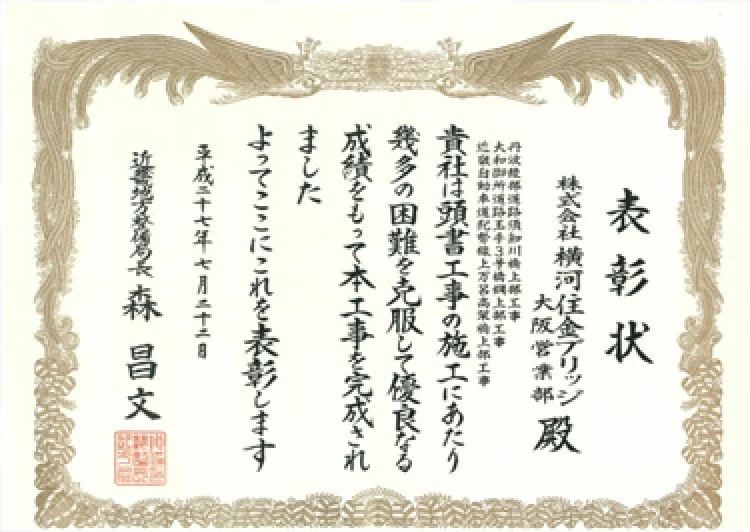 表彰状
株式会社横河住金ブリッジ
大阪営業部殿
丹波綾部道路須知川橋上部工事
大和御所道路玉手3号橋鋼上部工事
近畿自動車道紀勢線上万呂高架橋上部工事
貴社は頭書工事の施工にあたり
幾多の困難を克服して優良なる
成績をもって本工事を完成され
ました
よってここにこれを表彰します
平成二十七年七月二十二日
近畿地方整備局長 森昌文